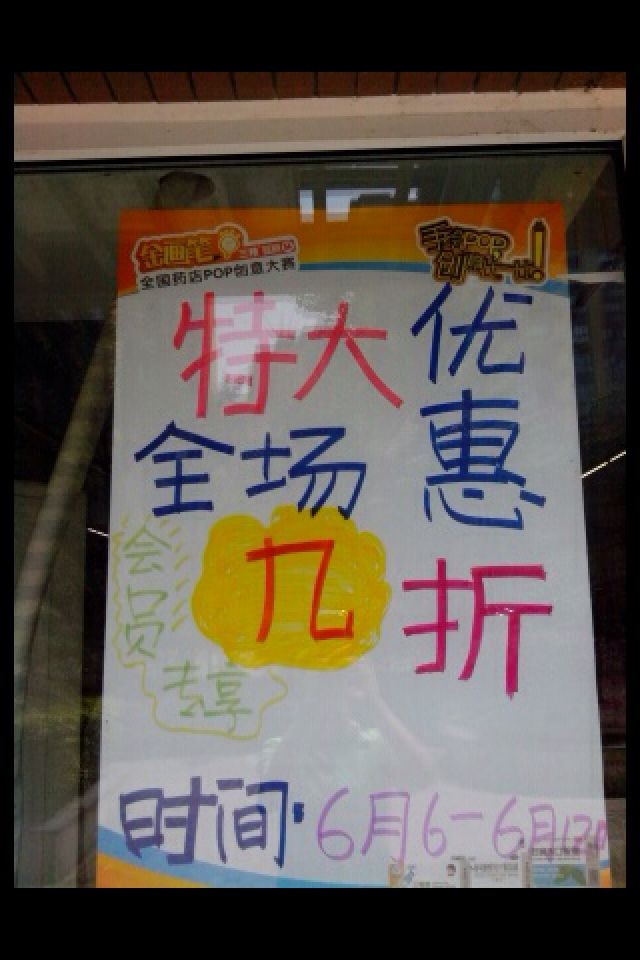 金画笔
全国药店POP创意大赛
特大优惠
全场九折
会员
专享
时间:6月6-6月12日